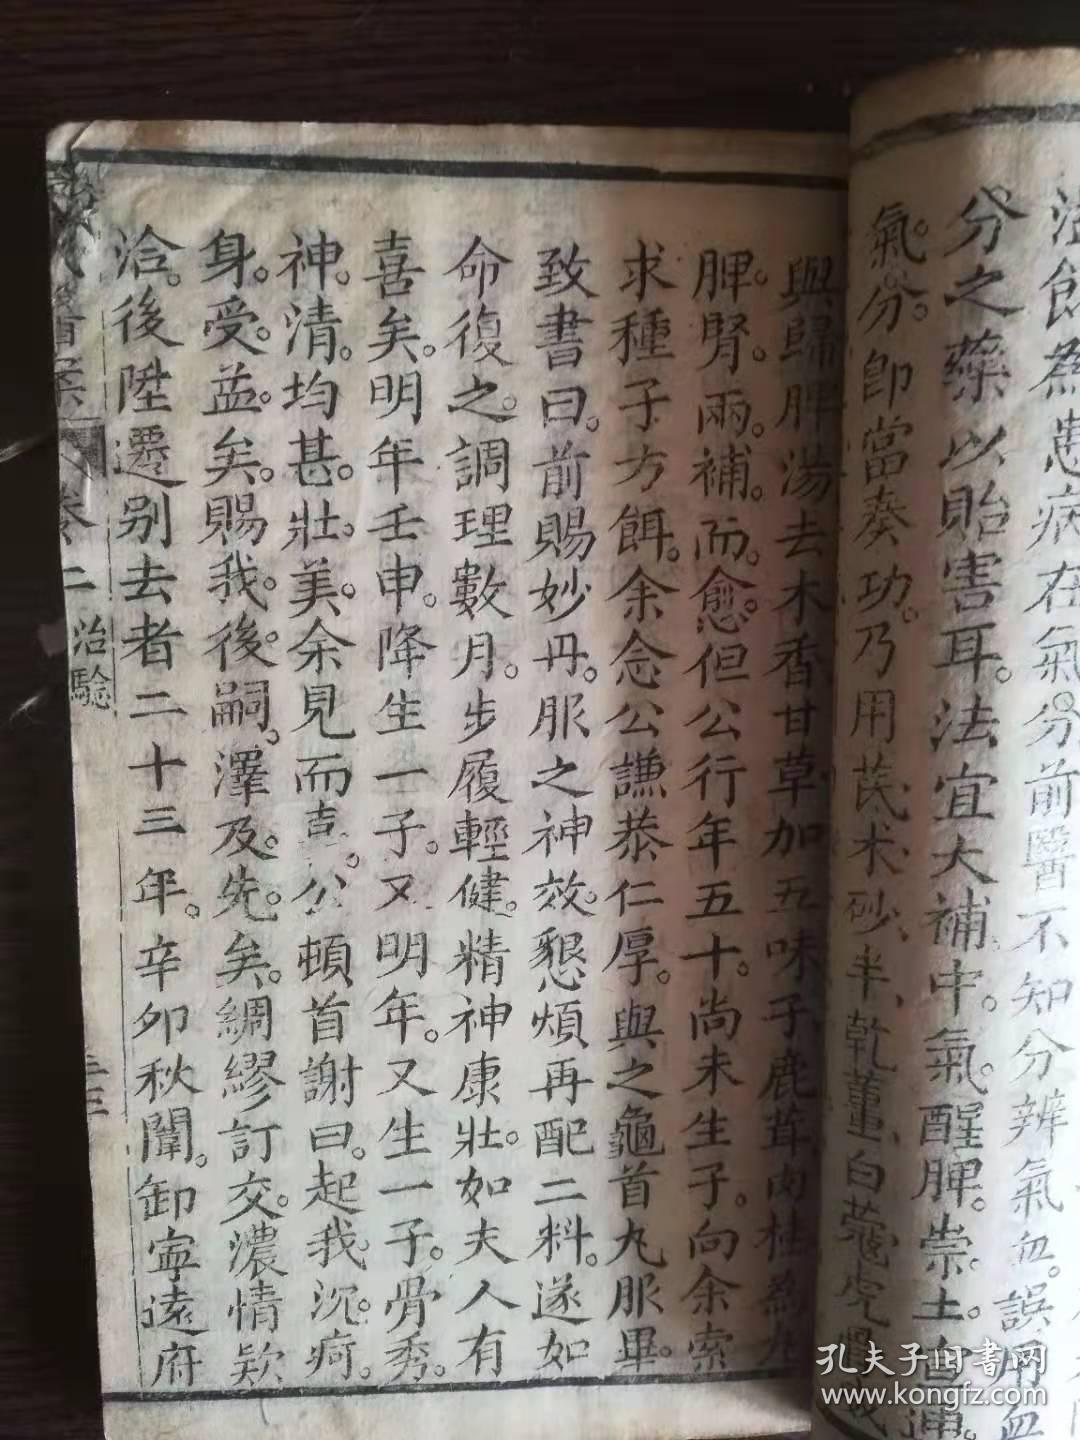 飭爲患病在氣。分前醫不知分辨氣血。誤用血
分之藥以貽害耳。法宜大補中。氣。醒脾。崇土。自運。
氣。分。卽當奏功。乃用芪、术、砂、半、乾薑、白蔻、虎骨
與歸脾湯去木香甘草加五味子鹿茸肉桂爲丸
脾。腎。兩。補。而。愈。但公行年五十。尚未生子。向余索
求種子方餌。余念公謙恭仁厚。與之龜首丸服畢。
致書曰。前賜妙丹。服之神效。懇煩再配二料。遂如
命復之。調理數月。步履輕健。精神康壯。如夫人有
喜矣。明年壬申。降生一子。又明年。又生一子。骨秀。
神。清。均甚。壯。美。余見而喜。公頓首謝曰。起我。沉。疴。
身。受。益。矣。賜我。後。嗣。澤及。先。矣。綢繆訂交。濃情欵
洽。後陞遷别去者二十三年。辛卯秋闈。卸寧遠府
卷二 治驗